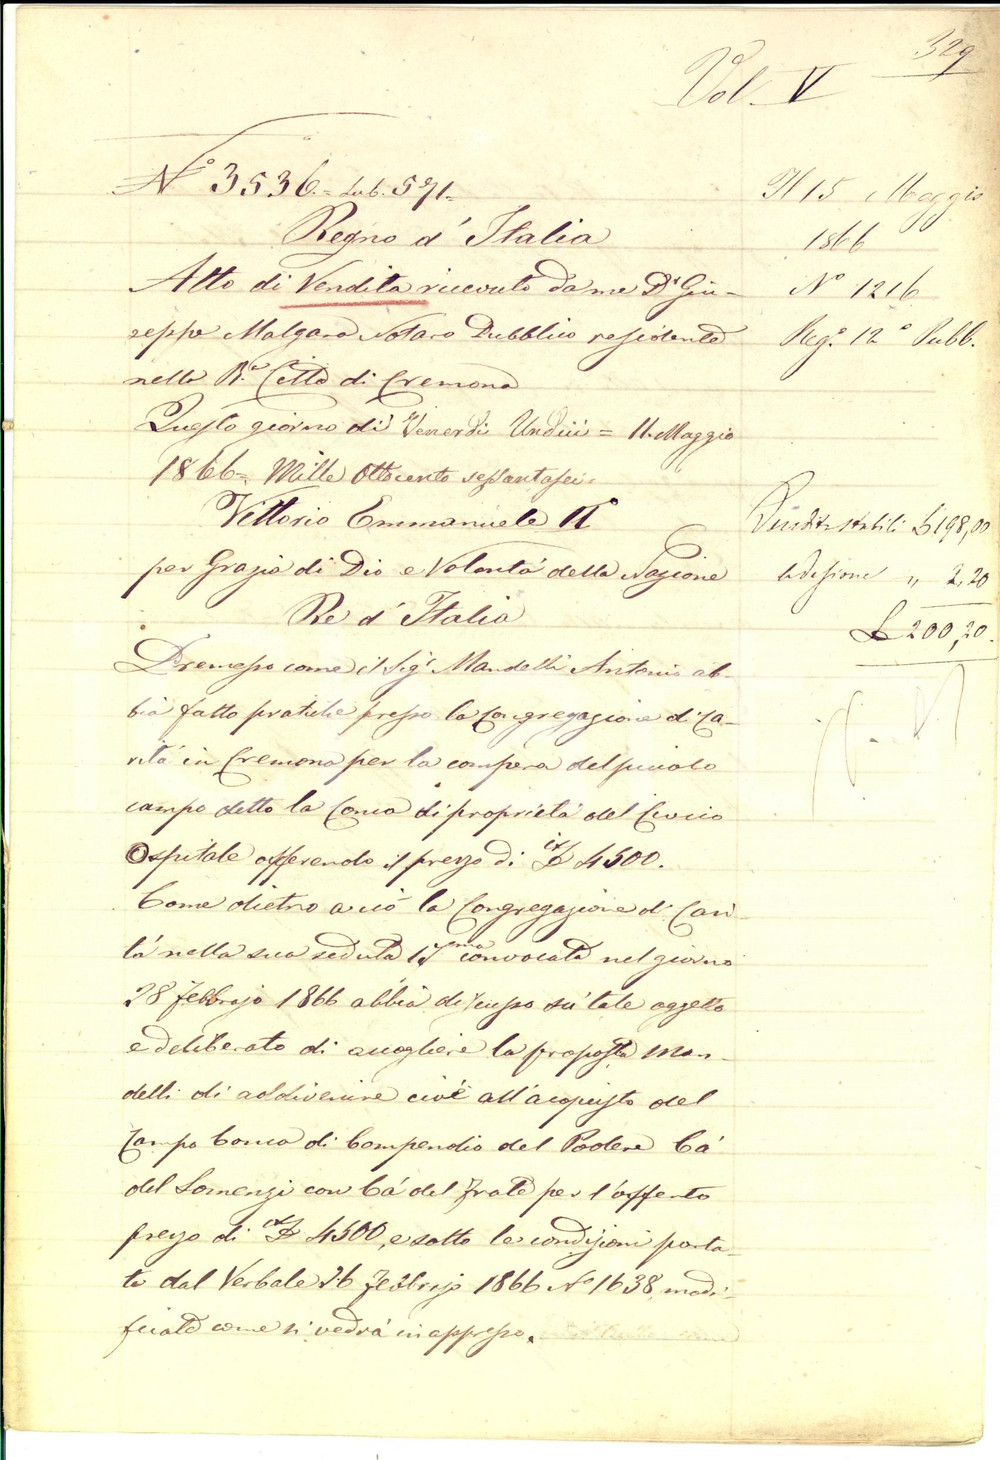 329
Vol. V
N.° 3536.= Sub. 571.=
Regno d'Italia
Atto di Vendita ricevuto da me D.r Giu-
seppe Malgara Notaro Pubblico residente
nella R.a Città di Cremona
Questo giorno di Venerdi Undici = 11. Maggio
1866=. Mille Ottocento sessantasei=
Vittorio Emmanuele II°
per Grazia di Dio e Volontà della Nazione
Re d'Italia
Premesso come il Sig.r Mandelli Antonio ab-
bia fatto pratiche presso la Congregazione di Ca-
rità in Cremona per la compera del piccolo
campo detto la Conca di proprietà del Civico
Ospitale offerendo il prezzo di it£ 4500.
Come dietro a ciò la Congregazione di Cari-
tà nella sua seduta convocata nel giorno
28 Febbrajo 1866 abbia discusso su tale oggetto
e deliberato di accogliere la proposta Man-
delli di addivenire cioè all'acquisto del
Campo Conca di Compendio del Podere Cà
del Somenzi con Cà del Frate per l'offerto
prezzo di it£ 4500, e sotto le condizioni porta-
te dal Verbale 26 Febbrajo 1866 N° 1638, modi-
ficate come si vedrà in appresso.
Il 15 Maggio
1866
N° 1216
Reg.° 12° Pubb.
Vendita stabili £ 198,00
adesione " 2,20
£ 200,20.